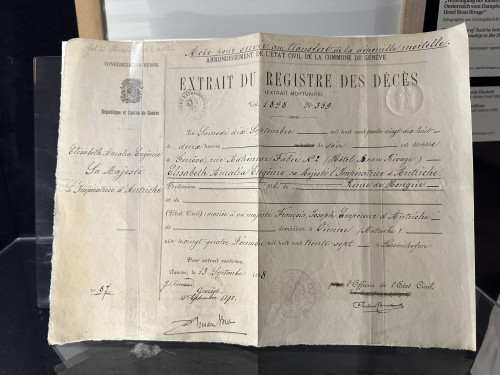 Acte pour servir au transfert de la dépouille mortelle.
ARRONDISSEMENT DE L'ÉTAT CIVIL DE LA COMMUNE DE GENÈVE
CONFÉDÉRATION SUISSE
République et Canton de Genève
EXTRAIT DU REGISTRE DES DÉCÈS
(EXTRAIT MORTUAIRE)
Vol. 1898 No 369.
Le Samedi dix Septembre mil huit cent quatre vingt dix huit
à deux heures du soir est décédée
Genève, Rue Adhémar Fabri No 2 (Hôtel Beau Rivage)
Elisabeth Amalia Eugénie, sa Majesté l'Impératrice d'Autriche,
Profession Reine de Hongrie
et de
(Etat Civil) mariée à sa majesté François Joseph Empereur d'Autriche
domiciliée à Vienne (Autriche)
née le vingt quatre Décembre mil huit cent trente sept à Possenhofen
Elisabeth Amalia Eugénie
Sa Majesté
l'Impératrice d'Autriche
Pour extrait conforme,
Genève, 13 Septembre 1898
l'Officier de l'Etat Civil,
Genève
Septembre 1898.
No 87
Oesterreich vom Dampf
Hotel Beau Rivage"
of Austria